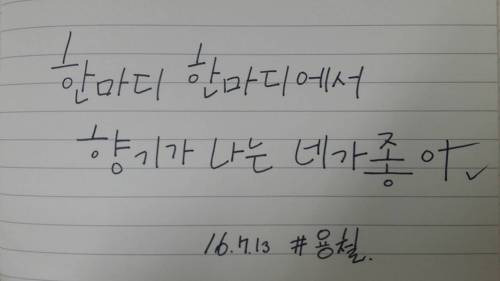 한마디 한마디에서
향기가 나는 네가좋아
16.7.13 #용철.